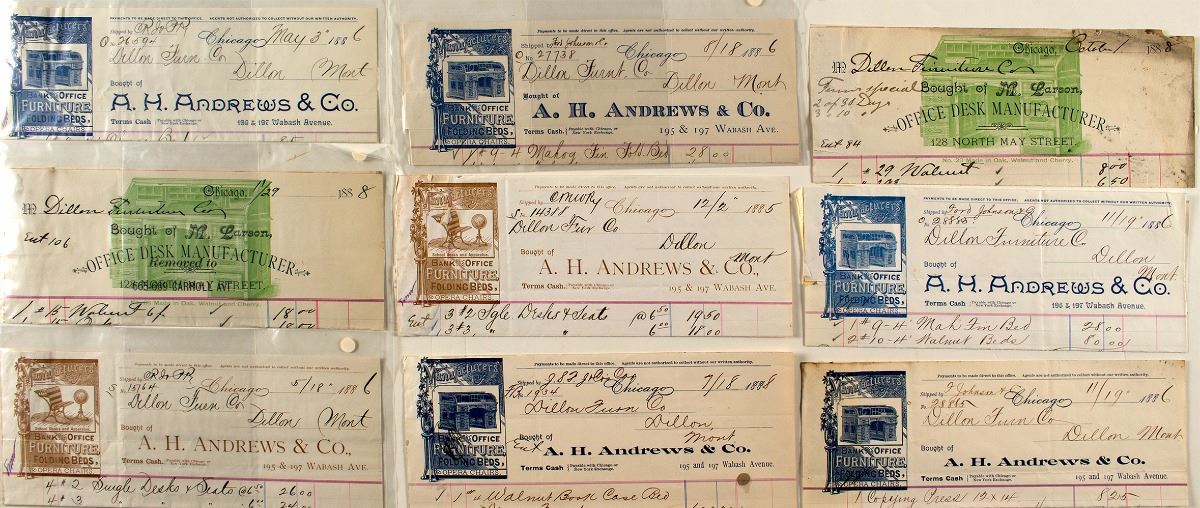 Manufacturers of
BANK & OFFICE
FURNITURE,
FOLDING BEDS,
& OPERA CHAIRS.
PAYMENTS TO BE MADE DIRECT TO THIS OFFICE. AGENTS NOT AUTHORIZED TO COLLECT WITHOUT OUR WRITTEN AUTHORITY.
Shipped by
O 26594
Chicago, May 3" 1886
Dillon Furn Co
Dillon Mont
Bought of
A. H. ANDREWS & CO.
Terms Cash. Payable with Chicago or New York Exchange.
195 & 197 Wabash Avenue.
Manufacturers of
BANK & OFFICE
FURNITURE,
FOLDING BEDS,
& OPERA CHAIRS.
Payments to be made direct to this office. Agents are not authorized to collect without our written authority.
Shipped by Johnson
O No 27738
Chicago 8/18 1886
Dillon Furnt. Co
Dillon Mont
Bought of
A. H. ANDREWS & CO.
Terms Cash Payable with Chicago or New York Exchange.
195 & 197 WABASH AVE.
1 # 9-4 Mahog Fin Fold Bed 28.00
Chicago, October 1 1888
M Dillon Furniture Co
Terms special
Bought of M. Larson,
2 of 30 Days
OFFICE DESK MANUFACTURER
128 NORTH MAY STREET.
Est 84
No. 29 Made in Oak, Walnut and Cherry.
1 # 29 Walnut 8.00
6.50
Chicago, 1/29 1888
M Dillon Furniture Co
Est 106
Bought of M. Larson,
OFFICE DESK MANUFACTURER
Removed to
665-669 CARROLL AVE.
Made in Oak, Walnut and Cherry.
18.00
Manufacturers of
School Desks and Apparatus.
BANK & OFFICE
FURNITURE,
FOLDING BEDS,
& OPERA CHAIRS.
Payments to be made direct to this office. Agents are not authorized to collect without our written authority.
Shipped by
S No. 14388
Chicago 12/2" 1885
Dillon Fur Co
Dillon
Mont
Bought of
A. H. ANDREWS & CO.,
195 & 197 WABASH AVE.
3 #2 Sgle Desks & Seat @ 6.50 19.50
3 #3 " " 6.00 18.00
Manufacturers of
BANK & OFFICE
FURNITURE,
FOLDING BEDS,
& OPERA CHAIRS.
PAYMENTS TO BE MADE DIRECT TO THIS OFFICE. AGENTS NOT AUTHORIZED TO COLLECT WITHOUT OUR WRITTEN AUTHORITY.
Shipped by Ford Johnson & Co
O. 28865
Chicago 11/19" 1886
Dillon Furniture Co
Dillon
Mont
Bought of
A. H. ANDREWS & CO.
Terms Cash Payable with Chicago or New York Exchange.
195 & 197 Wabash Avenue.
1 # 9-4' Mah Fin Bed 28.00
2 # 10-4' Walnut Beds 80.00
Manufacturers of
School Desks and Apparatus.
BANK & OFFICE
FURNITURE,
FOLDING BEDS,
& OPERA CHAIRS.
Payments to be made direct to this office. Agents are not authorized to collect without our written authority.
Shipped by
S No. 15764
Chicago 5/18" 1886
Dillon Furn Co
Dillon Mont
Bought of
A. H. ANDREWS & CO.,
Terms Cash. Payable with Chicago or New York Exchange.
195 & 197 WABASH AVE.
4 # 2 Single Desks & Seats @ 6.50 26.00
4 # 3 " " 6.00 24.00
Manufacturers of
BANK & OFFICE
FURNITURE,
FOLDING BEDS,
& OPERA CHAIRS.
Payments to be made direct to this office. Agents are not authorized to collect without our written authority.
Shipped by
No. 1934
Chicago 7/18 1888
Dillon Furn Co
Dillon,
Mont
Bought of
A. H. Andrews & Co.
Terms Cash Payable with Chicago or New York Exchange.
195 and 197 Wabash Avenue.
1 Walnut Book Case Bed
Manufacturers of
BANK & OFFICE
FURNITURE,
FOLDING BEDS,
& OPERA CHAIRS.
Payments to be made direct to this office. Agents are not authorized to collect without our written authority.
Shipped by F Johnson & Co
No. 28865
Chicago 11/19" 1886
Dillon Furn Co
Dillon Mont
Bought of
A. H. Andrews & Co.
Terms Cash Payable with Chicago or New York Exchange.
195 and 197 Wabash Avenue.
1 Copying Press 12 x 14 8.25